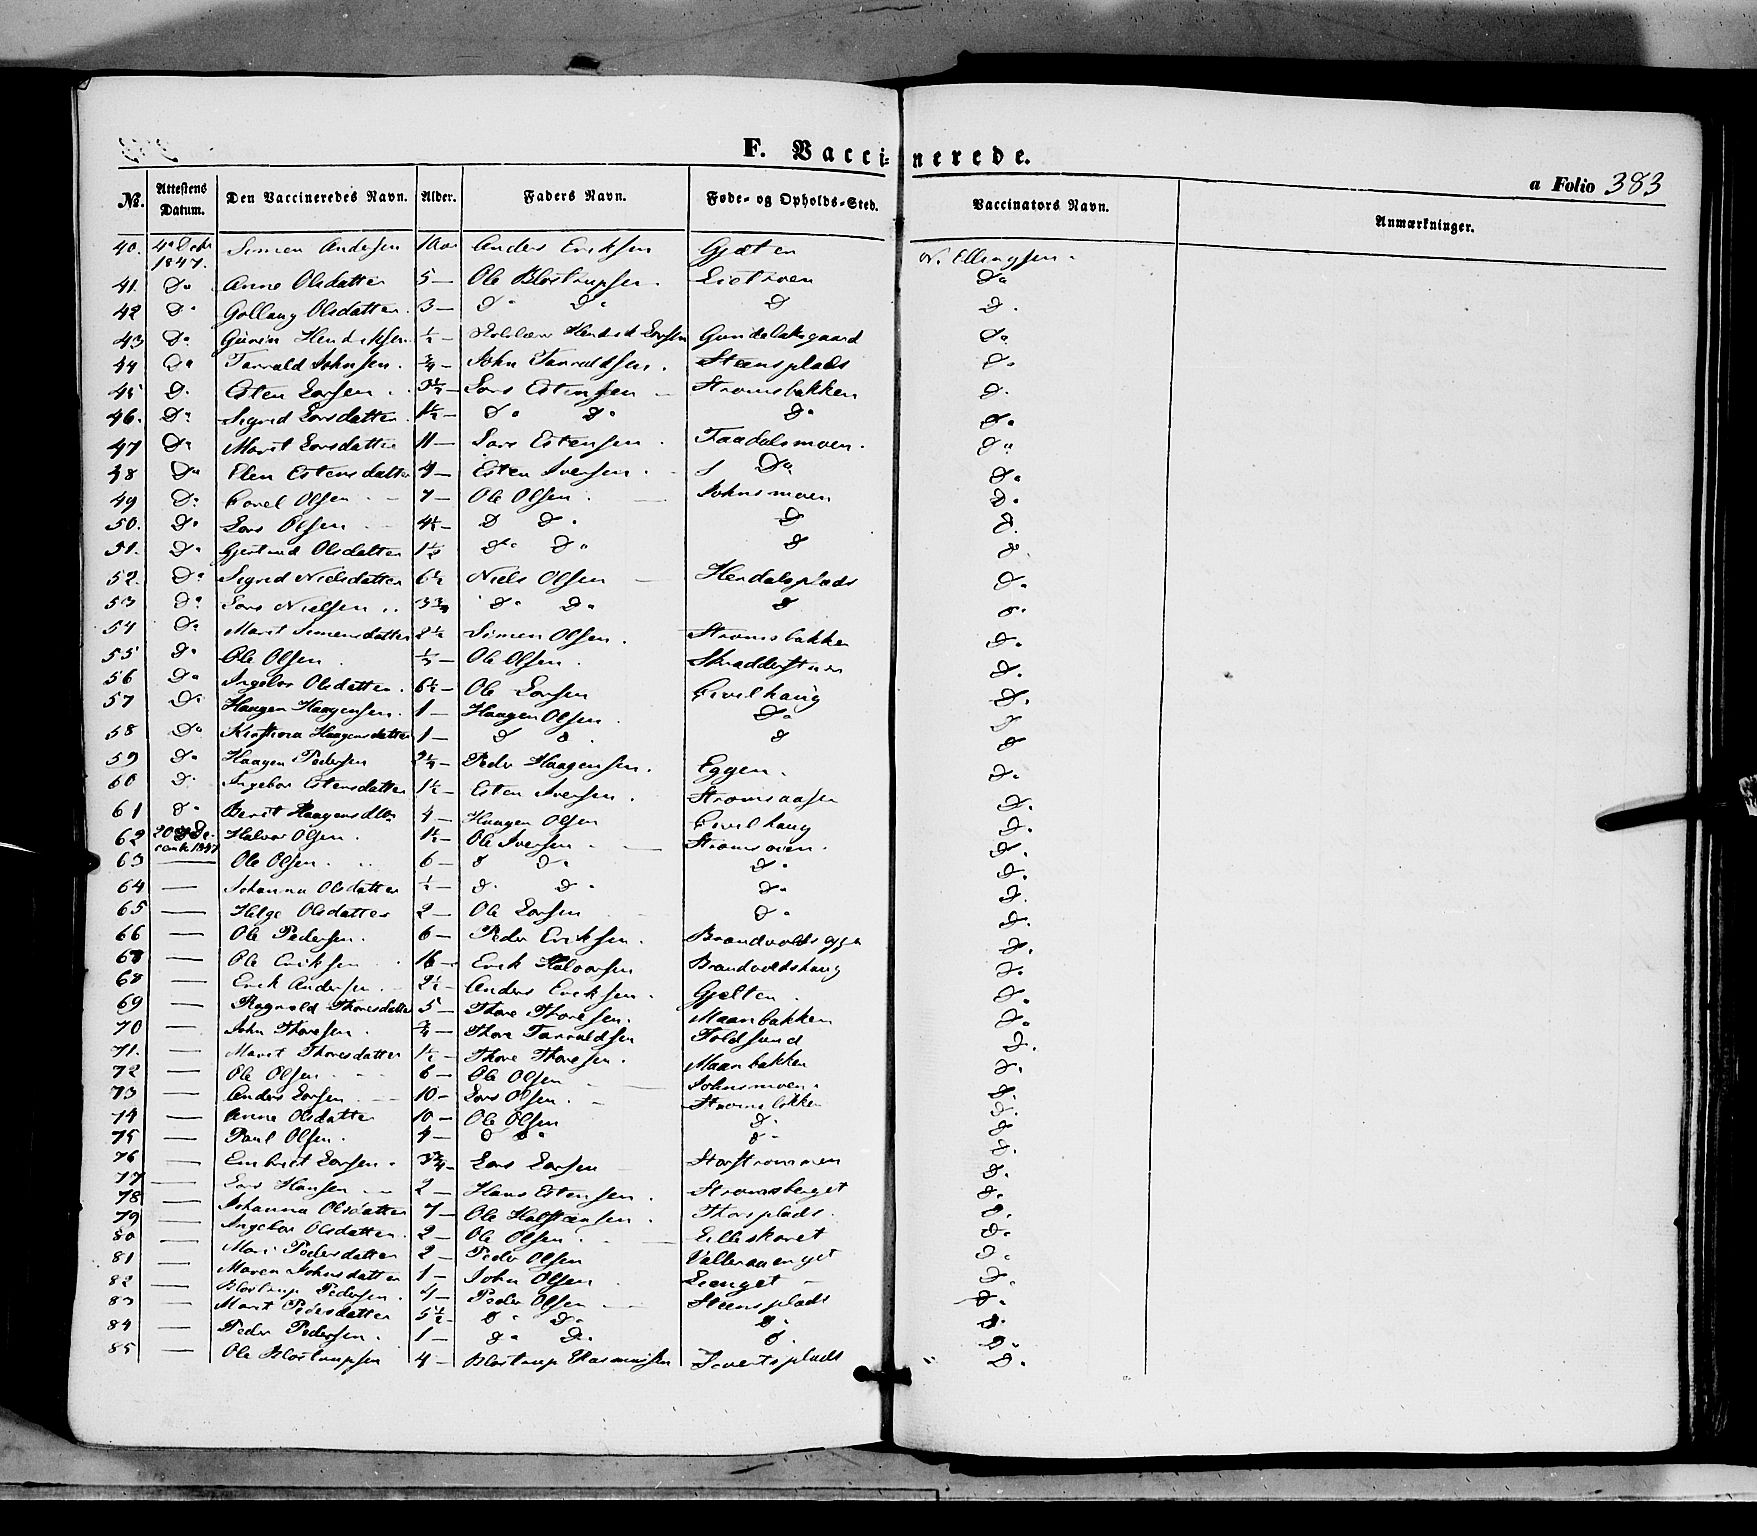 F. Vaccinerede.
a Folio 383
№. Attestens Datum. Den Vaccineredes Navn. Alder. Faders Navn. Føde- og Opholds-Sted. Vaccinators Navn. Anmærkninger.
40. 1847. Simen Andersen 10 Anders Eriksen Gjelten N. Ellingsen.
41. Do Anne Olsdatter 5 — Ole Blostrupsen. Do
42 Do Olsdatter. 3 — Do Do D D.
43 Do ½ — Do
44 Do Tarrald Johnsen. ¾ — John Tarraldsen. Steensplads D.
45 D. Esten Larsen. 3½ — Lars Estensen Stromsbakken D.
46. Do Sigrid Larsdatter. 1½ — Do Do Do D.
47 Do Marit Larsdatter 11 — Lars Estensen. Taadalsmoen. Do
48 Do Elen Estensdatter 4 — Esten Iversen. Do D.
49 D. Olsen 7 — Ole Olsen. Johnsmoen D.
50. Do Lars Olsen 4½ — D D. D D.
51. Do Gjertrud Olsdatter 1½ Do Do D D.
52. Do Sigrid Nielsdatter 6½ Niels Olsen Do
53 Do Lars Nielsen 3¾ Do Do D D.
54 Do Marit Simensdatter 2½ Simen Olsen. Stromsbakken D.
55 Do Ole Olsen. ½ — Ole Olsen. D.
56 Do Ingebor Olsdatter. 6½ — Ole Larsen D.
57 Do Haagen Haagensen. 1 — Haagen Olsen. Do D
58 Do Haagensdatter 1 — D D. D D
59 Do Haagen Pedersen 2½ — Peder Haagensen. Eggen. D.
60 D. Ingebor Estensdatter 1½ — Esten Iversen. Stromsaasen D.
61 Do Berit Haagensdtr 4 — Haagen Olsen D.
62 1847 Halvor Olsen. 1½ — Ole Iversen Stromsoren. D.
63 — Ole Olsen. 6 — D Do D. D.
64 — Johanna Olsdatter ½ — D. Do Do D.
65 — Helge Olsdatter 2 — Ole Larsen Do D.
66 — Ole Pedersen. 6 — Peder Eriksen. D.
— Ole Eriksen 16 — Erik Halvorsen Brandvoldshaug D.
68 — Erik Andersen. 2½ — Anders Eriksen. Gjelten. D.
69 — Ragnild Thoresdatter 5 — Thore Thoresen. Maanbakken D.
70 — John Thoresen. ¾ — Thore Tarraldsen Foldsund D.
71. — Marit Thoresdatter 1½ — Thore Thoresen. Maanbakken D.
72 — Ole Olsen 6 — Ole Olsen Johnsmoen. D.
73 — Anders Larsen. 10 — Lars Olsen. D.
74 — Anne Olsdatter 10 — Ole Olsen D. D.
75 — Paul Olsen. 4 — D Do D. D.
76 — Embret Larsen. 3¾ — Lars Larsen Storstrommen D.
77 — Lars Hansen 2 — Hans Estensen. Stromsberget D.
78 — Johanna Olsdatter 7 — Ole Thorsplads. D.
79 — Ingebor Olsdatter. 2 — Ole Olsen. Lilleskaret D.
80 — Mari Pedersdatter 2 — Peder Olsen D.
81 — Maren Johnsdatter 1 — John Olsen Lienget D.
82 — Blostrup Pedersen. 4 — Peder Olsen Steensplads D.
83 — Marit Pedersdatter 5½ D Do D. D.
84 — Peder Pedersen. 1 — Do Do D. D.
85 — Ole Blostrupsen 4 — Blostrup Rasmussen Ivertsplads D.